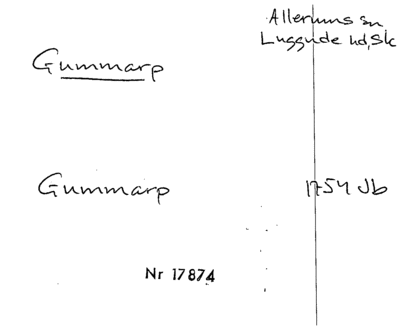 Allerums sn
Luggude hd, Sk
Gummarp
Gummarp 1754 Jb
Nr 17874